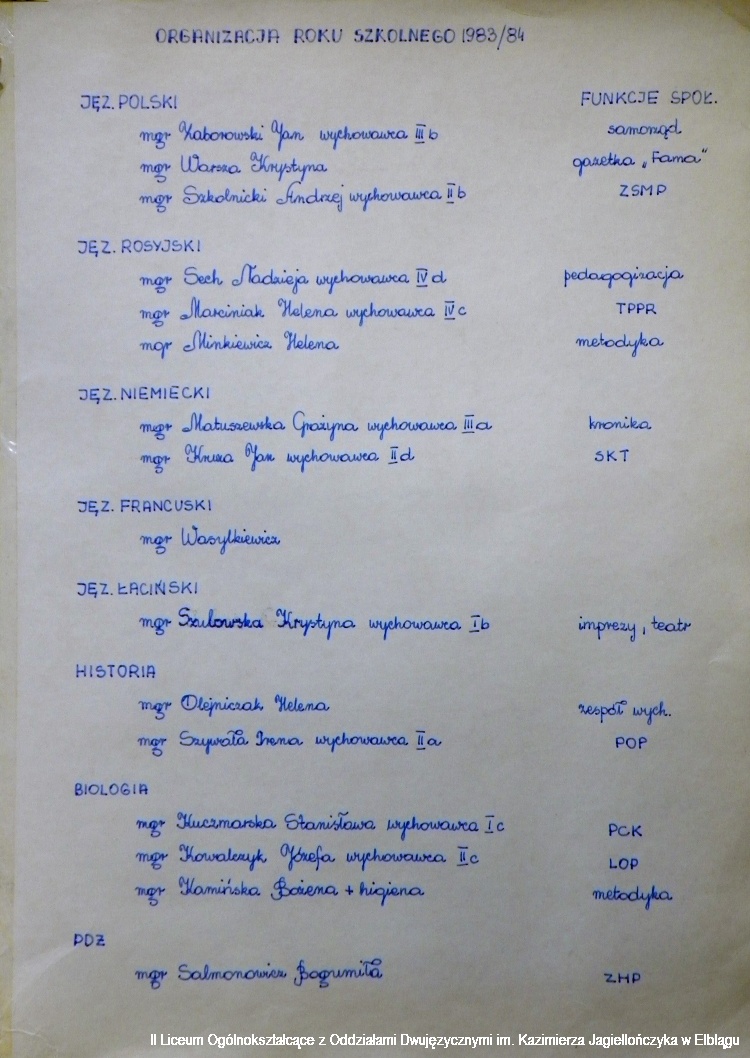 ORGANIZACJA ROKU SZKOLNEGO 1983/84
JĘZ. POLSKI FUNKCJE SPOŁ.
mgr Zaborowski Jan wychowawca III b samorząd
mgr Warsza Krystyna gazetka „Fama"
mgr Szkolnicki Andrzej wychowawca II b ZSMP
JĘZ. ROSYJSKI
mgr Sech Nadzieja wychowawca IV d pedagogizacja
mgr Marciniak Helena wychowawca IV c TPPR
mgr Minkiewicz Helena metodyka
JĘZ. NIEMIECKI
mgr Matuszewska Grażyna wychowawca III a kronika
mgr Kruza Jan wychowawca II d SKT
JĘZ. FRANCUSKI
mgr Wasylkiewicz
JĘZ. ŁACIŃSKI
mgr Szulowska Krystyna wychowawca I b imprezy, teatr
HISTORIA
mgr Olejniczak Helena zespół wych.
mgr Szywała Irena wychowawca II a POP
BIOLOGIA
mgr Kuczmarska Stanisława wychowawca I c PCK
mgr Kowalczyk Józefa wychowawca II c LOP
mgr Kamińska Bożena + higiena metodyka
PDZ
mgr Salmonowicz Bogumiła ZHP
II Liceum Ogólnokształcące z Oddziałami Dwujęzycznymi im. Kazimierza Jagiellończyka w Elblągu